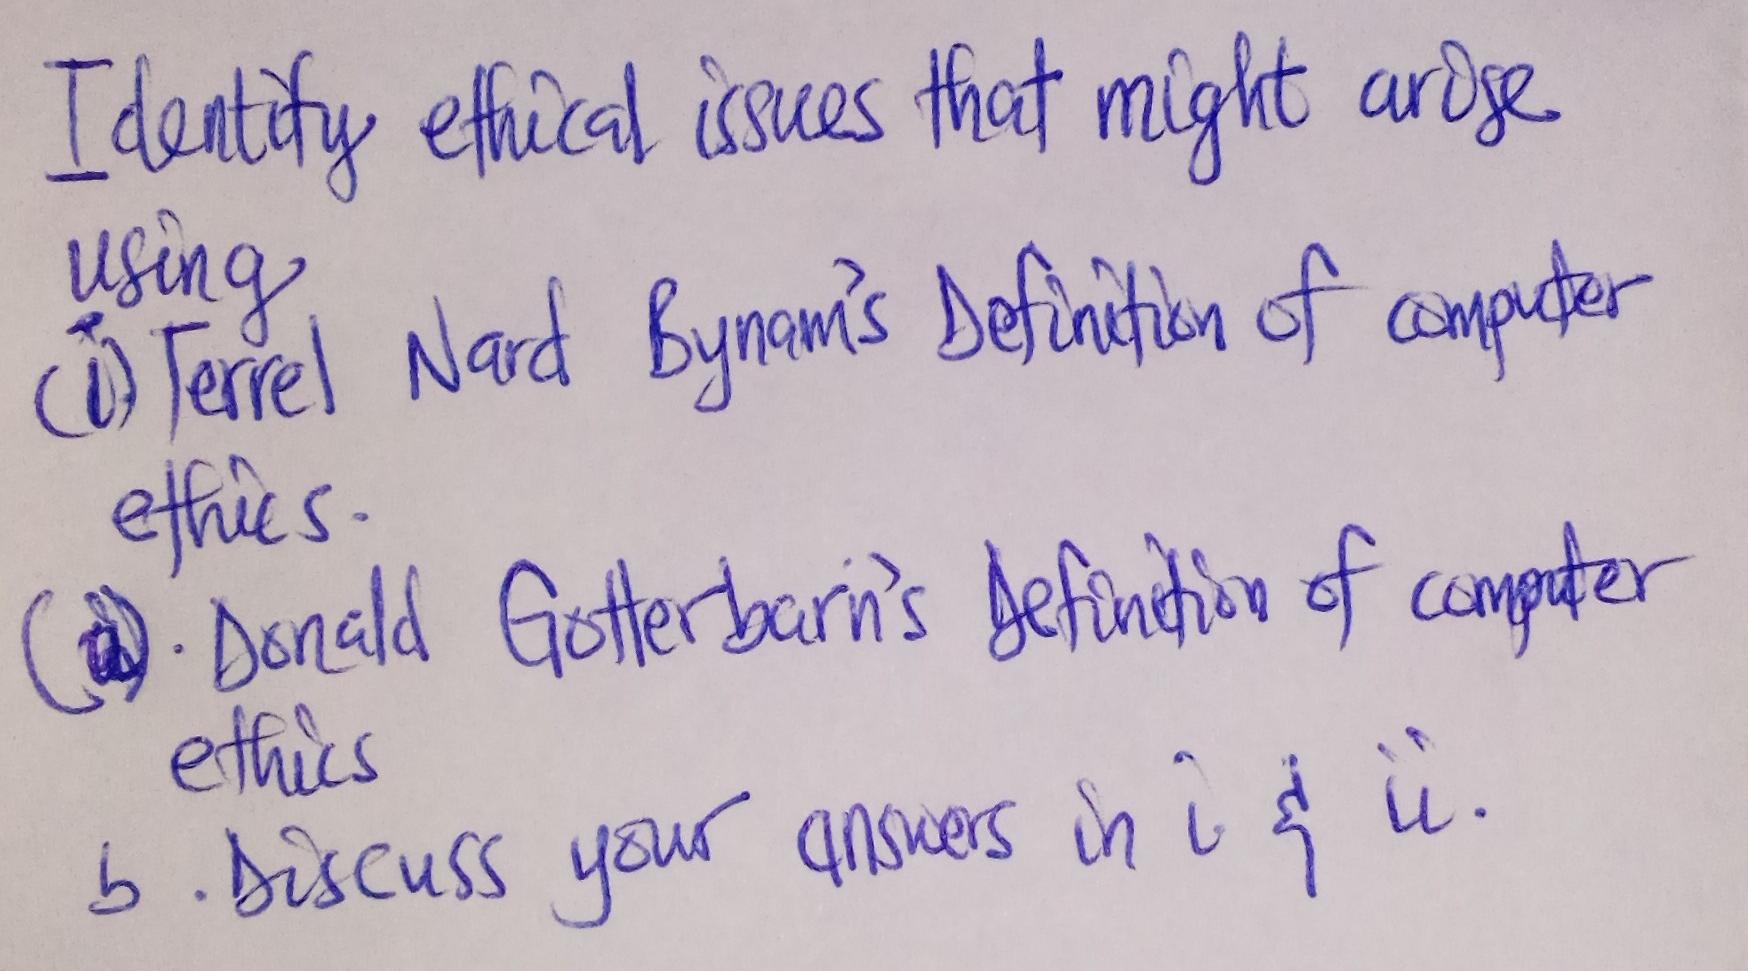 Identify ethical issues that might arise
using
(i) Terrel Nard Bynam's Definition of computer
ethics.
(ii). Donald Gotterbarn's Definition of computer
ethics
b. Discuss your answers in i & ii.